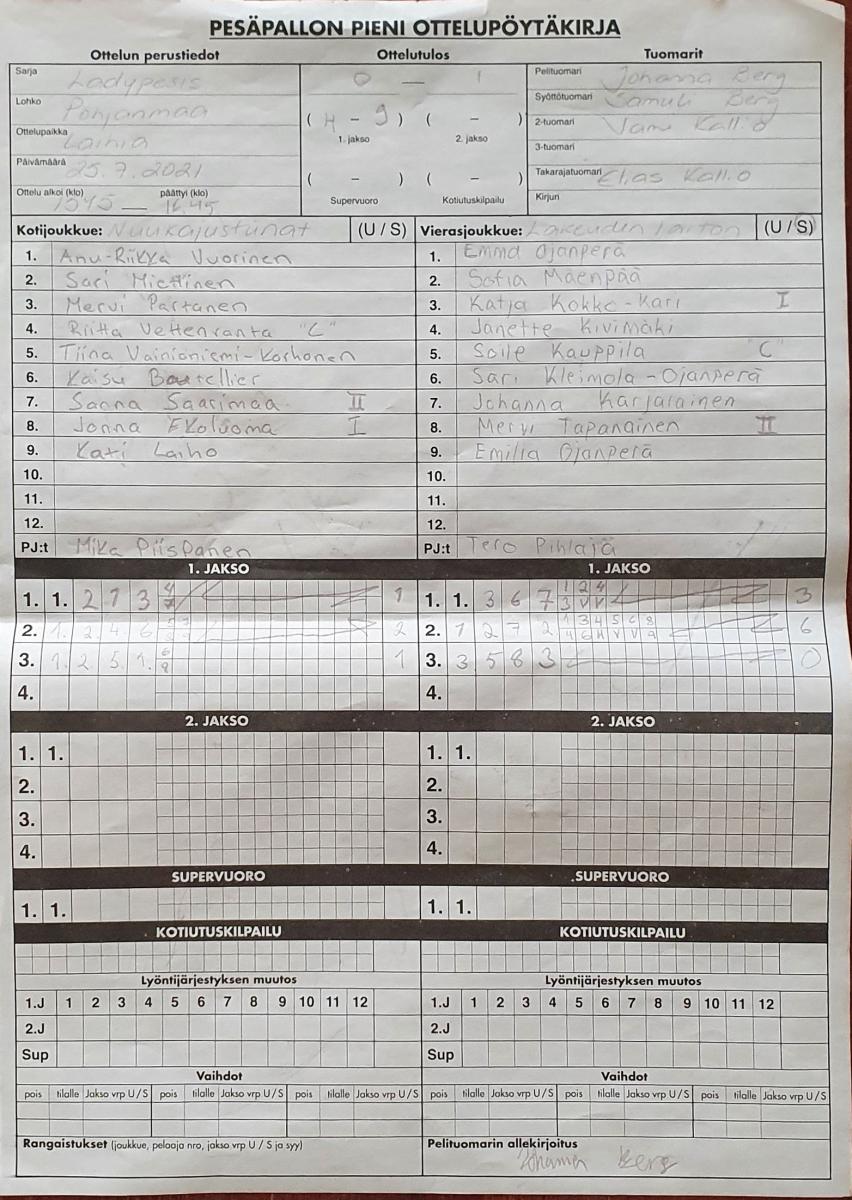 PESÄPALLON PIENI OTTELUPÖYTÄKIRJA
Ottelun perustiedot Ottelutulos Tuomarit
Sarja Ladypesis 0 — 1 Pelituomari Johanna Berg
Lohko Pohjanmaa Syöttötuomari Samuli Berg
( 4 - 9 ) ( - )
Ottelupaikka Lainia 1. jakso 2. jakso 2-tuomari Jani Kallio
3-tuomari
Päivämäärä 25.7.2021 ( - ) ( - ) Takarajatuomari Elias Kallio
Ottelu alkoi (klo) päättyi (klo) Supervuoro Kotiutuskilpailu Kirjuri
1545 — 16.45
Kotijoukkue: (U / S) Vierasjoukkue: Lakeuden (U / S)
1. Anu-Riikka Vuorinen 1. Emma Ojanperä
2. Sari Miettinen 2. Sofia Mäenpää
3. Mervi Partanen 3. Katja Kokko-Kari I
4. Riitta Vettenranta "C" 4. Janette Kivimäki
5. Tiina Vainioniemi-Korhonen 5. Soile Kauppila "C"
6. Kaisu 6. Sari Kleimola-Ojanperä
7. Sanna Saarimaa II 7. Johanna Karjalainen
8. Jonna Ekoluoma I 8. Mervi Tapanainen II
9. Kati Laiho 9. Emilia Ojanperä
10. 10.
11. 11.
12. 12.
PJ:t Mika Piispanen PJ:t Tero Pihlaja
1. JAKSO 1. JAKSO
1. 1. 2 1 3 4 7 1 1. 1. 3 6 7 1 2 4 3 V V 3
2. 1. 2. 4. 6 2 2. 1 2 7 2 1 3 4 5 6 8 4 6 H V V 9 6
3. 1. 2 5. 1. 6 8 1 3. 3 5 8 3 0
4. 4.
2. JAKSO 2. JAKSO
1. 1. 1. 1.
2. 2.
3. 3.
4. 4.
SUPERVUORO SUPERVUORO
1. 1. 1. 1.
KOTIUTUSKILPAILU KOTIUTUSKILPAILU
Lyöntijärjestyksen muutos Lyöntijärjestyksen muutos
1.J 1 2 3 4 5 6 7 8 9 10 11 12 1.J 1 2 3 4 5 6 7 8 9 10 11 12
2.J 2.J
Sup Sup
Vaihdot Vaihdot
pois tilalle Jakso vrp U / S pois tilalle Jakso vrp U / S pois tilalle pois tilalle Jakso vrp U / S pois tilalle Jakso vrp U / S pois tilalle Jakso vrp U / S
Rangaistukset (joukkue, pelaaja nro, jakso vrp U / S ja syy) Pelituomarin allekirjoitus
Johanna Berg